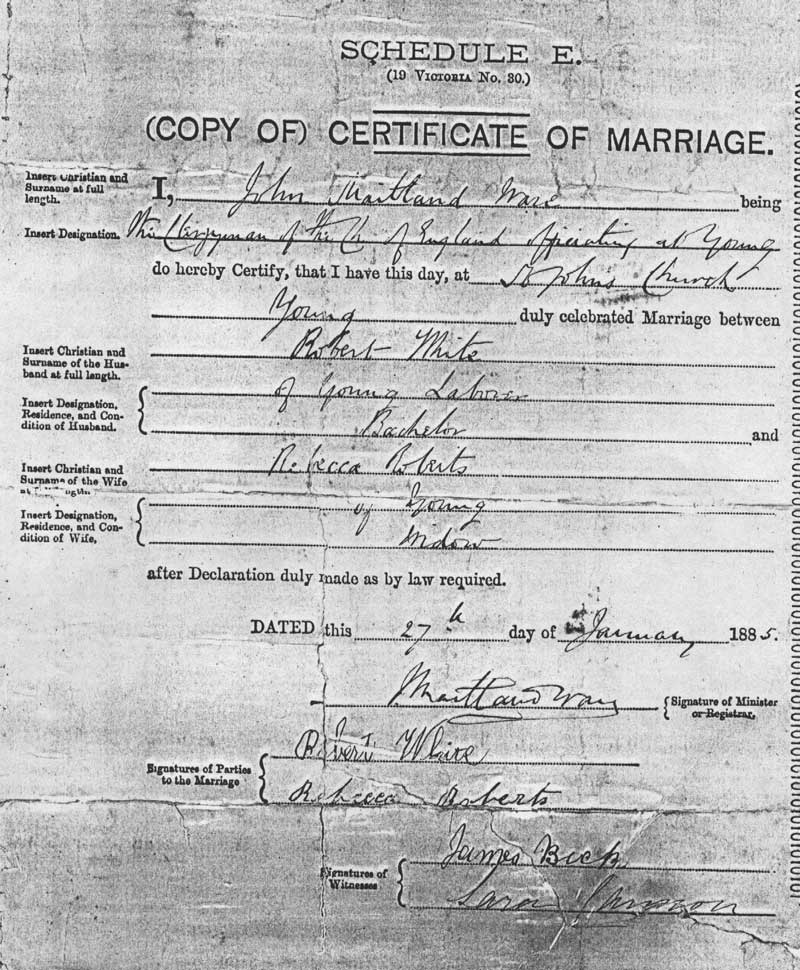 SCHEDULE E.
(19 VICTORIA No. 30.)
(COPY OF) CERTIFICATE OF MARRIAGE.
Insert Christian and
Surname at full
length.
I, John Maitland Ware being
Insert Designation. the Clergyman of the Ch of England officiating at Young
do hereby Certify, that I have this day, at St John's Church
Young duly celebrated Marriage between
Insert Christian and
Surname of the Hus-
band at full length.
Robert White
Insert Designation,
Residence, and Con-
dition of Husband.
of Young Laborer
Bachelor and
Insert Christian and
Surname of the Wife
at length.
Rebecca Roberts
Insert Designation,
Residence, and Con-
dition of Wife,
of Young
Widow
after Declaration duly made as by law required.
DATED this 27th day of January 1885.
Maitland Ware
Signature of Minister
or Registrar,
Signatures of Parties
to the Marriage
Robert White
Rebecca Roberts
Signatures of
Witnesses
James Beck
Sara